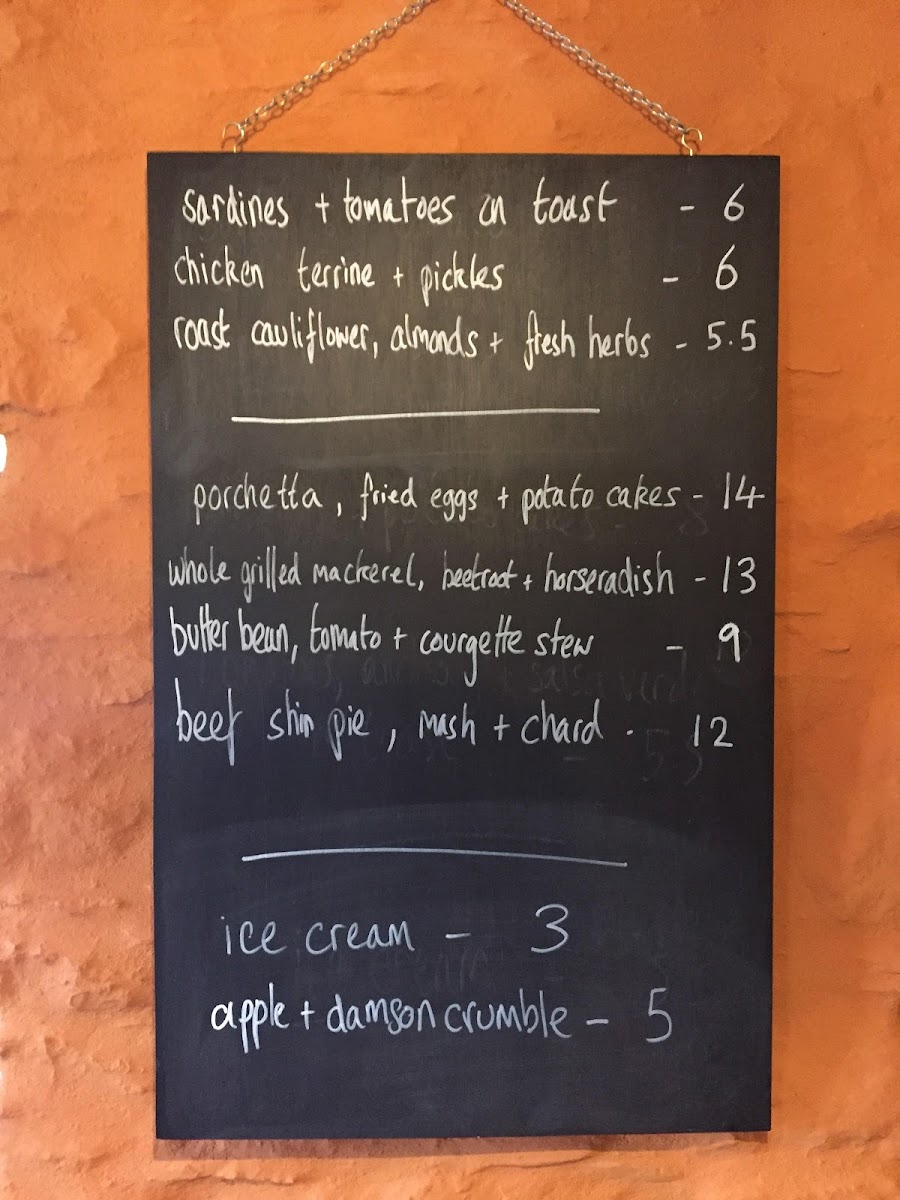 sardines + tomatoes on toast - 6
chicken terrine + pickles - 6
roast cauliflower, almonds + fresh herbs - 5.5
porchetta, fried eggs + potato cakes - 14
whole grilled mackerel, beetroot + horseradish - 13
butter bean, tomato + courgette stew - 9
beef shin pie, mash + chard . 12
ice cream - 3
apple + damson crumble - 5